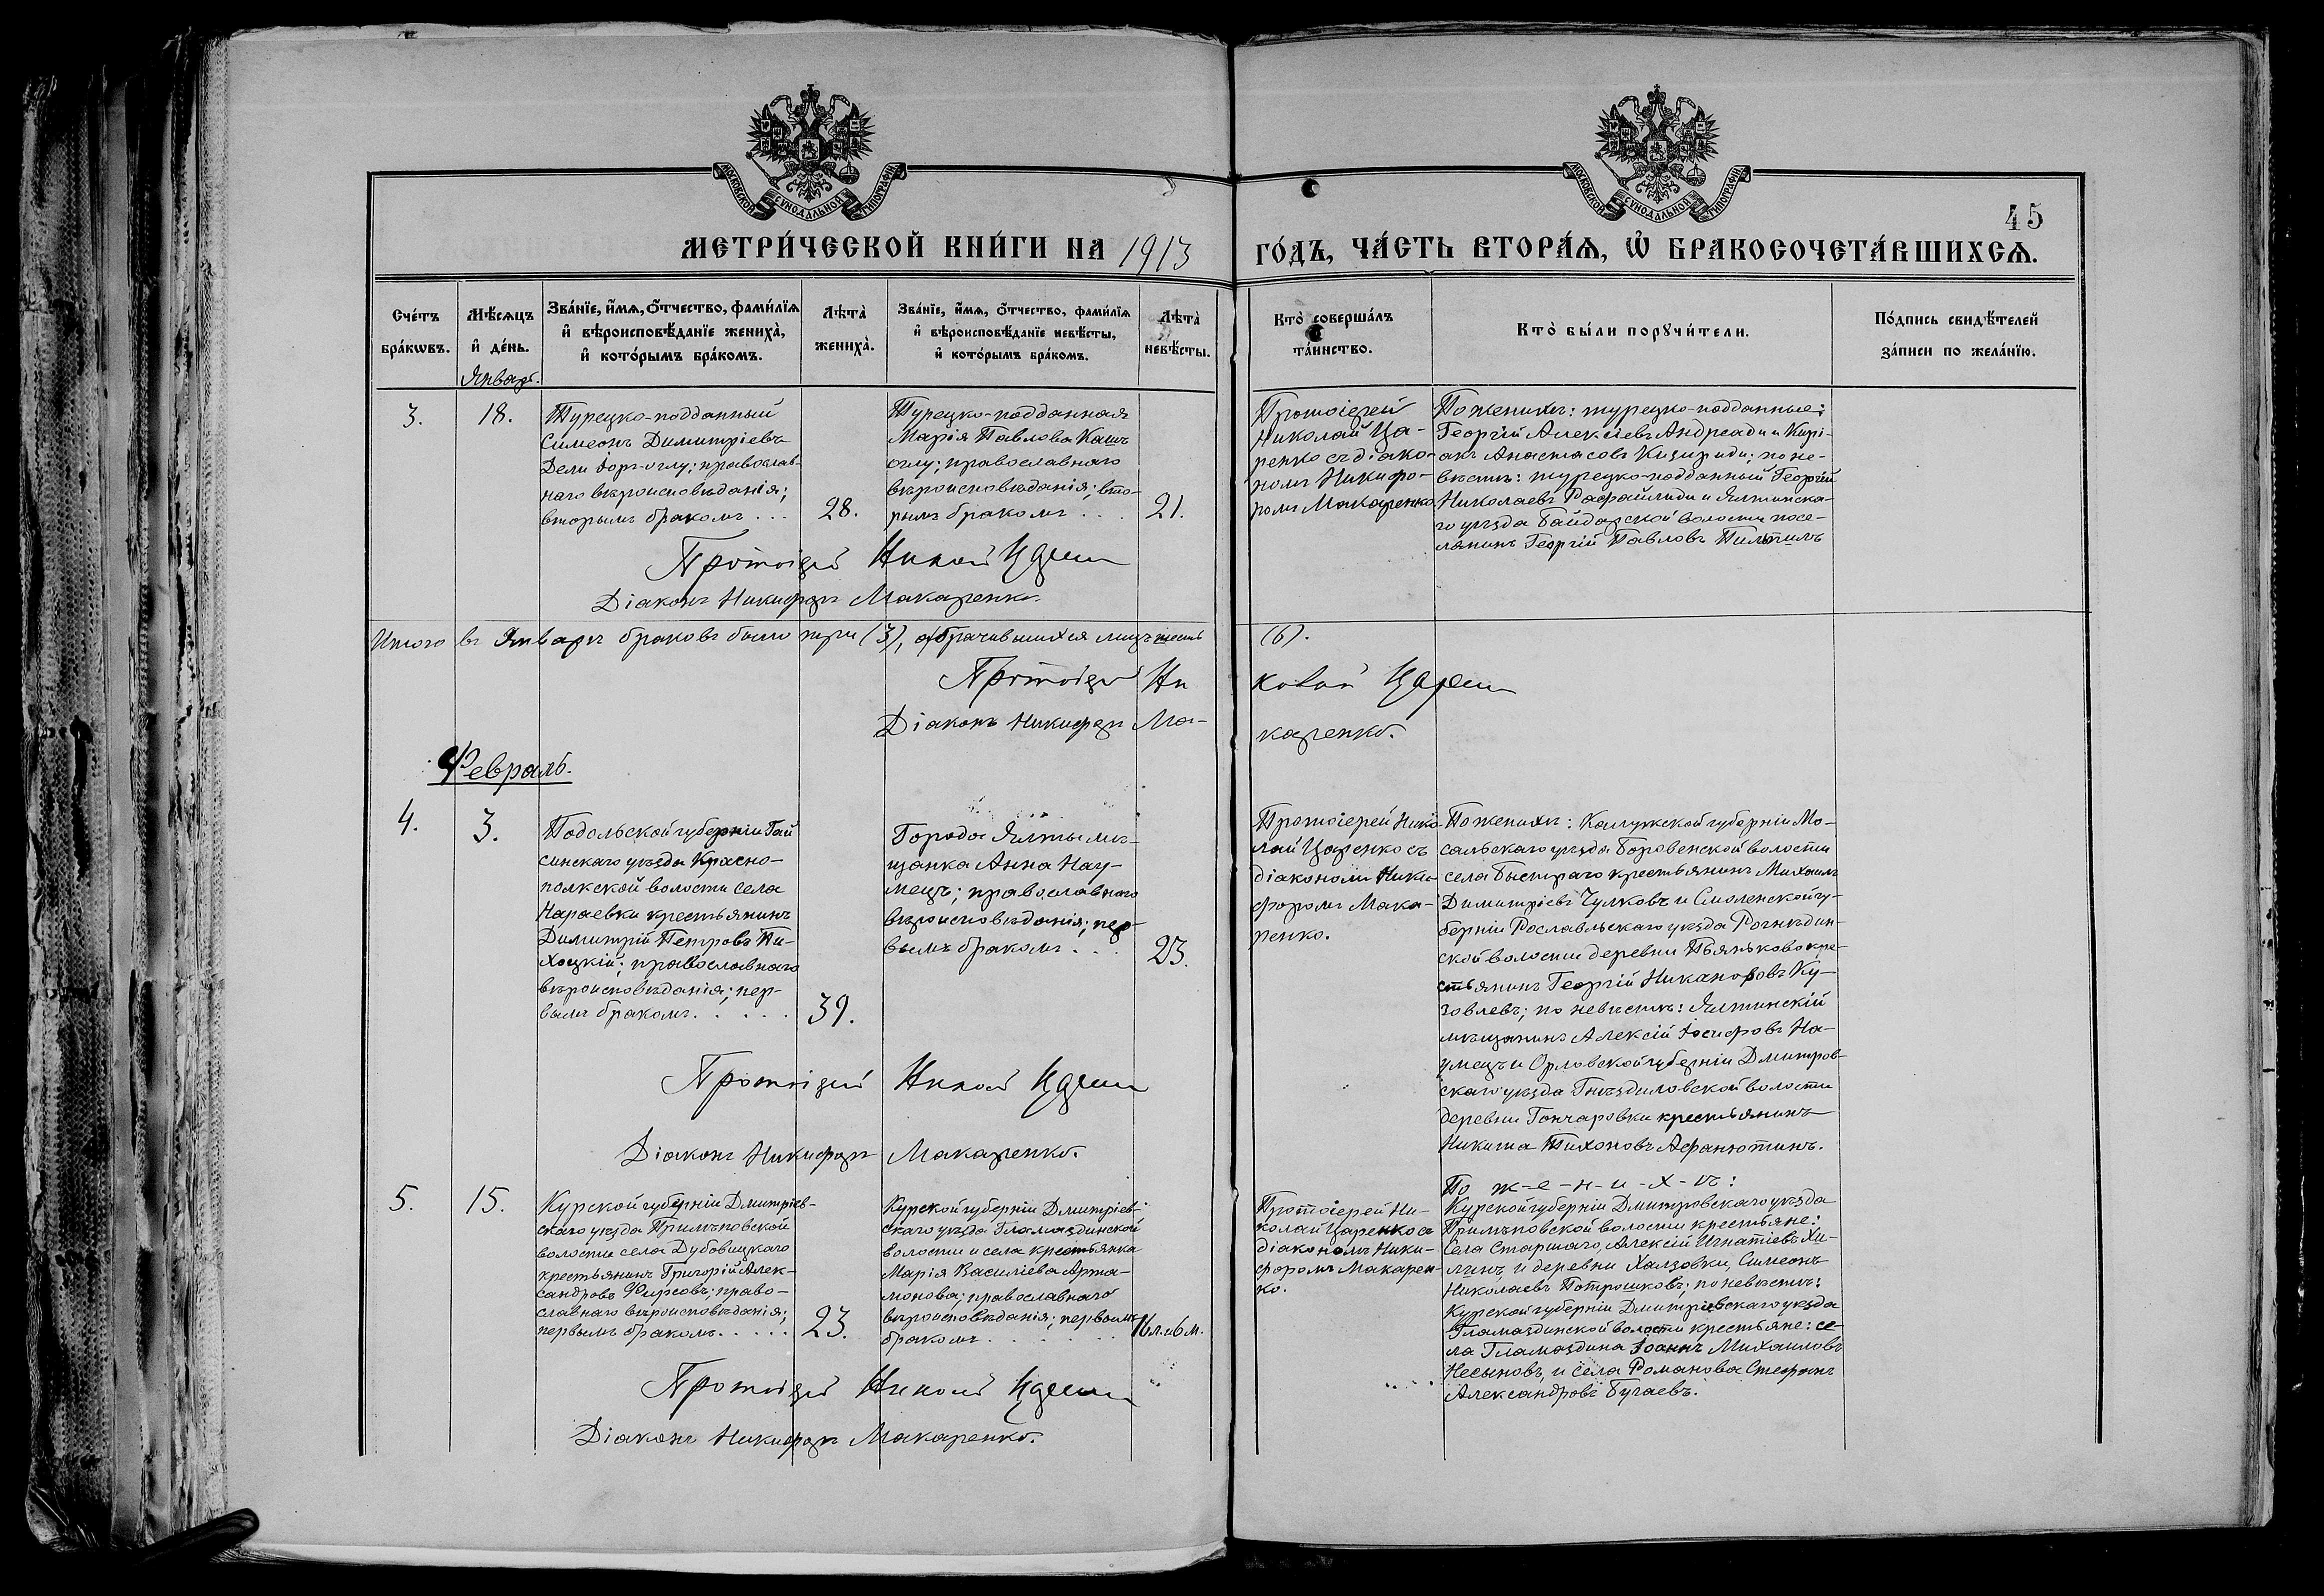 45
МЕТРИ́ЧЕСКОЙ КНИ́ГИ НА 1913 ГО́ДЪ, ЧА́СТЬ ВТОРА́Ѧ, Ѽ БРАКОСОЧЕТА́ВШИХСѦ.
МОСКОВСКОЙ СѴНОДАЛЬНОЙ ТИПОГРАФІИ
МОСКОВСКОЙ СѴНОДАЛЬНОЙ ТИПОГРАФІИ
Сче́тъ
бра́кѡвъ.
Мѣ́сѧцъ
и҆ де́нь.
Январь.
Зва́нїе, и҆́мѧ, ѻ҆́тчество, фами́лїѧ
и҆ вѣроисповѣ́данїе жениха̀,
и҆ кото́рымъ бра́комъ.
Лѣта̀
жениха̀.
Зва́нїе, и҆́мѧ, ѻ҆́тчество, фами́лїѧ
и҆ вѣроисповѣ́данїе невѣ́сты,
и҆ кото́рымъ бра́комъ.
Лѣта̀
невѣ́сты.
Кто̀ соверша́лъ
та́инство.
Кто̀ бы́ли порꙋчи́тели.
По́дпись свидѣ́телей
за́писи по жела́нїю.
3.
18.
Турецко-подданный
Симеонъ Димитріевъ
Дели Іорг-оглу; православ-
наго вѣроисповѣданія;
вторымъ бракомъ . . .
28.
Турецко-подданная
Марія Павлова Каш
оглу; православнаго
вѣроисповѣданія; вто-
рымъ бракомъ . . .
21.
Протоіерей
Николай Ца-
ренко съ діако-
номъ Никифо-
ромъ Макаренко
По женихѣ: турецко-подданные:
Георгій Алексіевъ Андреади и Кирі-
акъ Анастасовъ Кизириди; по не-
вѣстѣ: турецко-подданный Георгій
Николаевъ Рафаилиди и Ялтинска-
го уѣзда Байдарской волости посе-
лянинъ Георгій Павловъ
Протоіерей Николай Царенко
Діаконъ Никифоръ Макаренко.
Итого въ Январѣ браковъ было три (3), обрачившихся лицъ шесть (6).
Протоіерей Николай Царенко
Діаконъ Никифоръ Ма-каренко.
Февраль.
4.
3.
Подольской губерніи Гай
синскаго уѣзда Красно-
полкской волости села
Нараевки крестьянинъ
Димитрій Петровъ Пи-
хоцкій; православнаго
вѣроисповѣданія; пер-
вымъ бракомъ. . . . .
39.
Города Ялты мѣ-
щанка Анна Нау-
мецъ; православнаго
вѣроисповѣданія; пер-
вымъ бракомъ . . .
23.
Протоіерей Нико-
лай Царенко съ
діакономъ Ники-
форомъ Мака-
ренко.
По женихѣ: Калужской губерніи Мо-
сальскаго уѣзда Боровенской волости
села Быстраго крестьянинъ Михаилъ
Димитріевъ Чулковъ и Смоленской гу-
берніи Рославльскаго уѣзда Рогнѣдин-
ской волости деревни Пьяньково кре-
стьянинъ Георгій Никаноровъ Ку-
зовлевъ; по невѣстѣ: Ялтинскій
мѣщанинъ Алексій Іосифовъ На-
умецъ и Орловской губерніи Дмитров-
скаго уѣзда Гнѣздиловской волости
деревни Гончаровки крестьянинъ
Никита Тихоновъ Афанютинъ.
Протоіерей Николай Царенко
Діаконъ Никифоръ Макаренко.
5.
15.
Курской губерніи Дмитріев-
скаго уѣзда Прилѣповской
волости села Дубовицкаго
крестьянинъ Григорій Алек-
сандровъ Фирсовъ; право-
славнаго вѣроисповѣданія;
первымъ бракомъ. . . . .
23.
Курской губерніи Дмитріев-
скаго уѣзда Гламаздинской
волости и села крестьянка
Марія Василіева Арта-
монова; православнаго
вѣроисповѣданія; первымъ
бракомъ . . . . . . .
16 л. и 6 м.
Протоіерей Ни-
колай Царенко съ
діакономъ Ники-
форомъ Макарен-
ко.
По ж-е-н-и-х-ѣ:
Курской губерніи Дмитровскаго уѣзда
Прилѣповской волости крестьяне:
Села Старшаго, Алексій Игнатіевъ Хи-
линъ, и деревни Халзовки, Симеонъ
Николаевъ Потрошковъ; по невѣстѣ:
Курской губерніи Дмитріевскаго уѣзда
Гламаздинской волости крестьяне: се-
ла Гламаздина Іоаннъ Михаиловъ
Несыновъ, и села Романова Стефанъ
Александровъ Бугаевъ.
Протоіерей Николай Царенко
Діаконъ Никифоръ Макаренко.